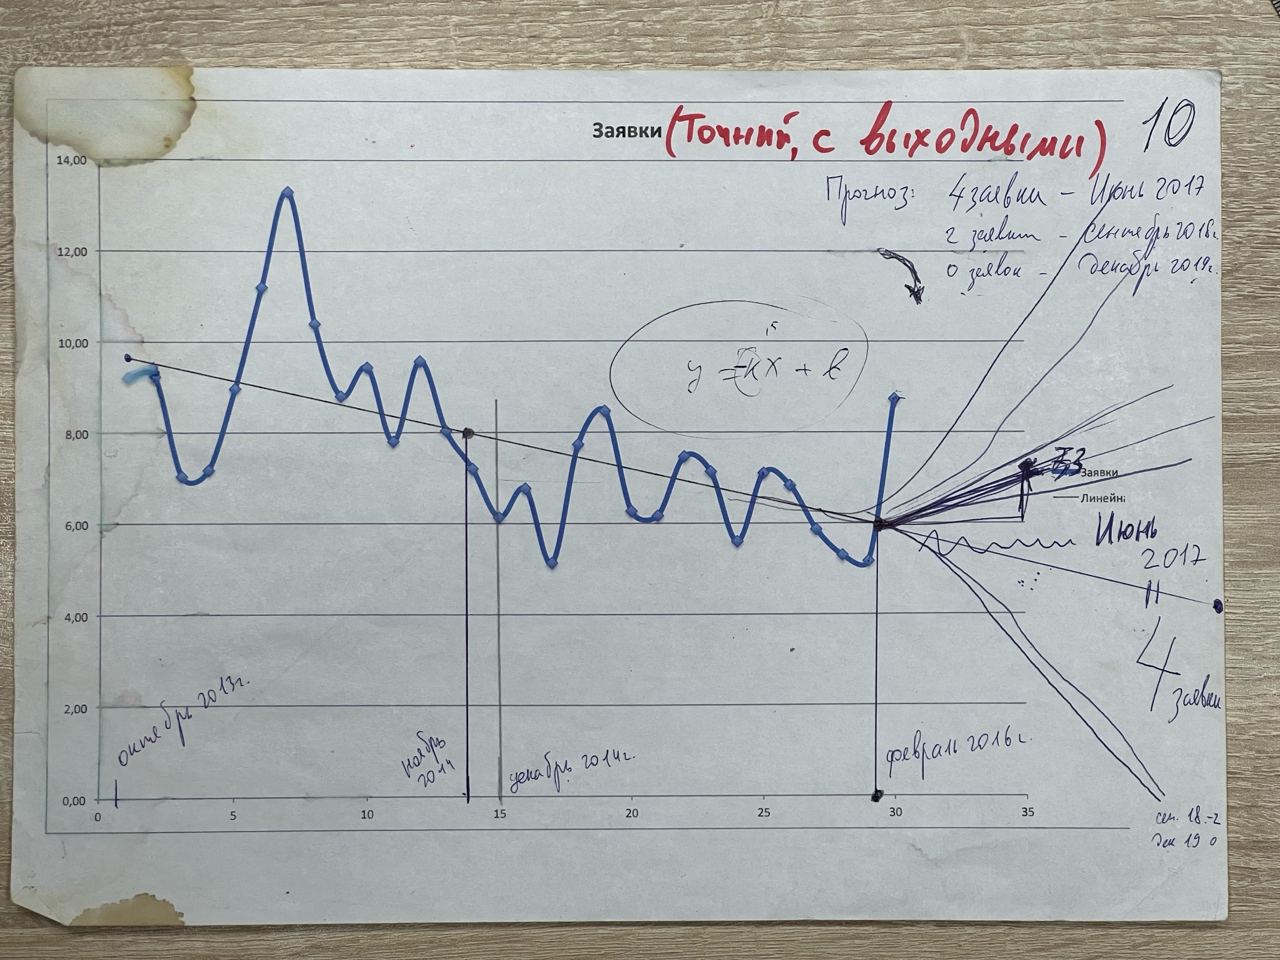 Заявки (Точний, с выходными) 10
Прогноз: 4 заявки - Июнь 2017
2 заявки - Сентябрь 2018г.
0 заявок - Декабрь 2019г.
14,00
12,00
10,00
8,00
6,00
4,00
2,00
0,00
y = -kx + b
7,3
Заявки
Линейн
Июнь
2017
=
4
заявки
октябрь 2013г.
ноябрь
2014
декабрь 2014г.
февраль 2016г.
0 5 10 15 20 25 30 35
сен. 18.-2
дек 19 0